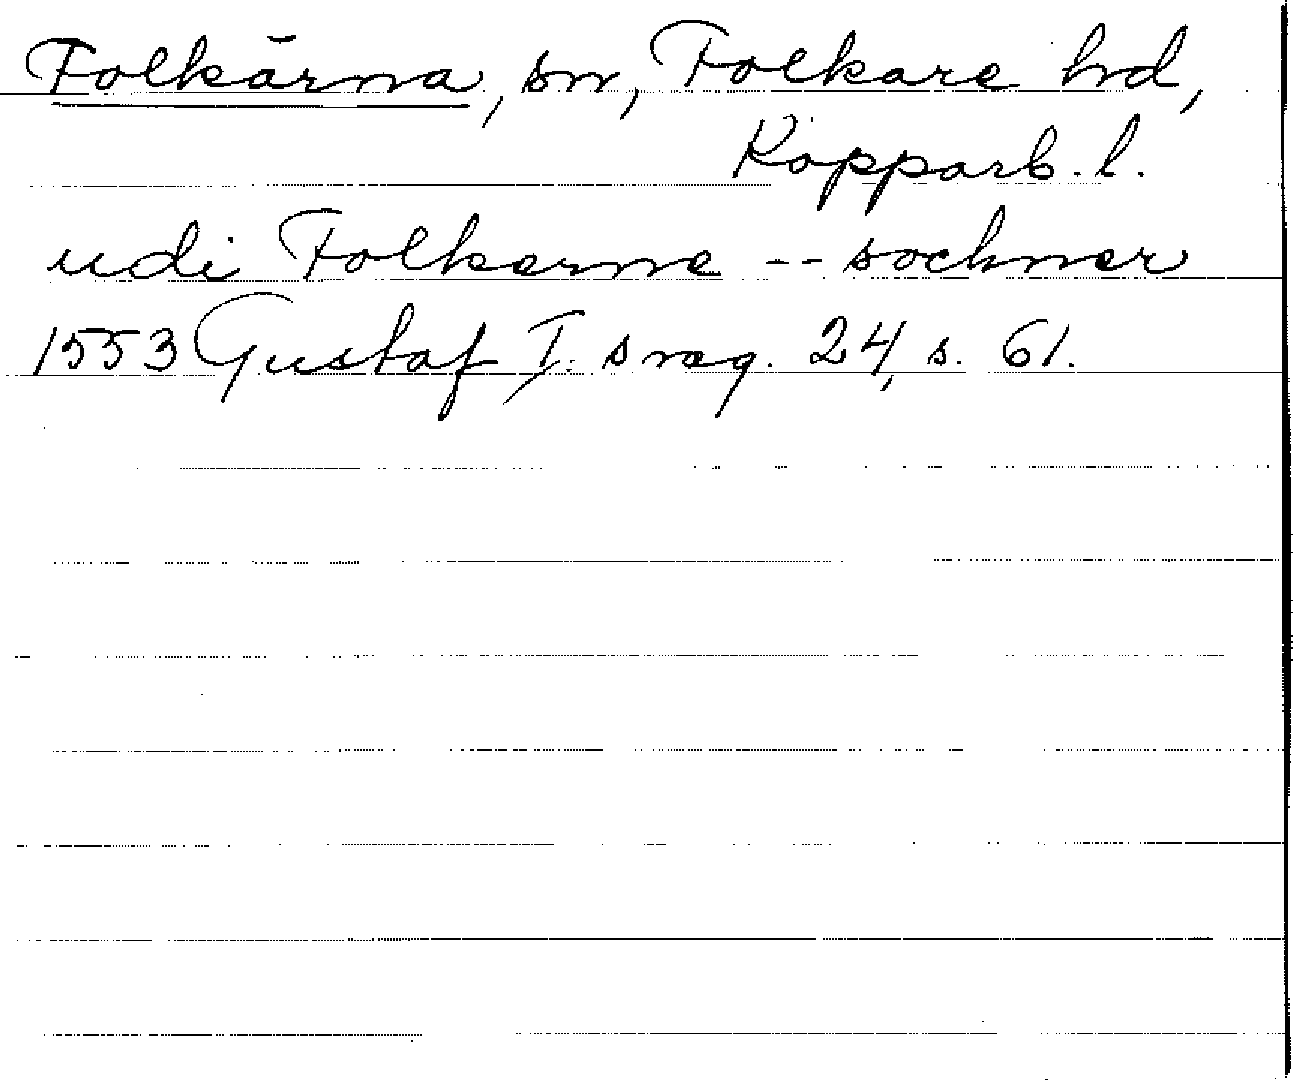 Folkärna, sn, Folkare hd,
Kopparb. l.
udi Folkerne -- sochner
1553 Gustaf I:s reg. 24, s. 61.